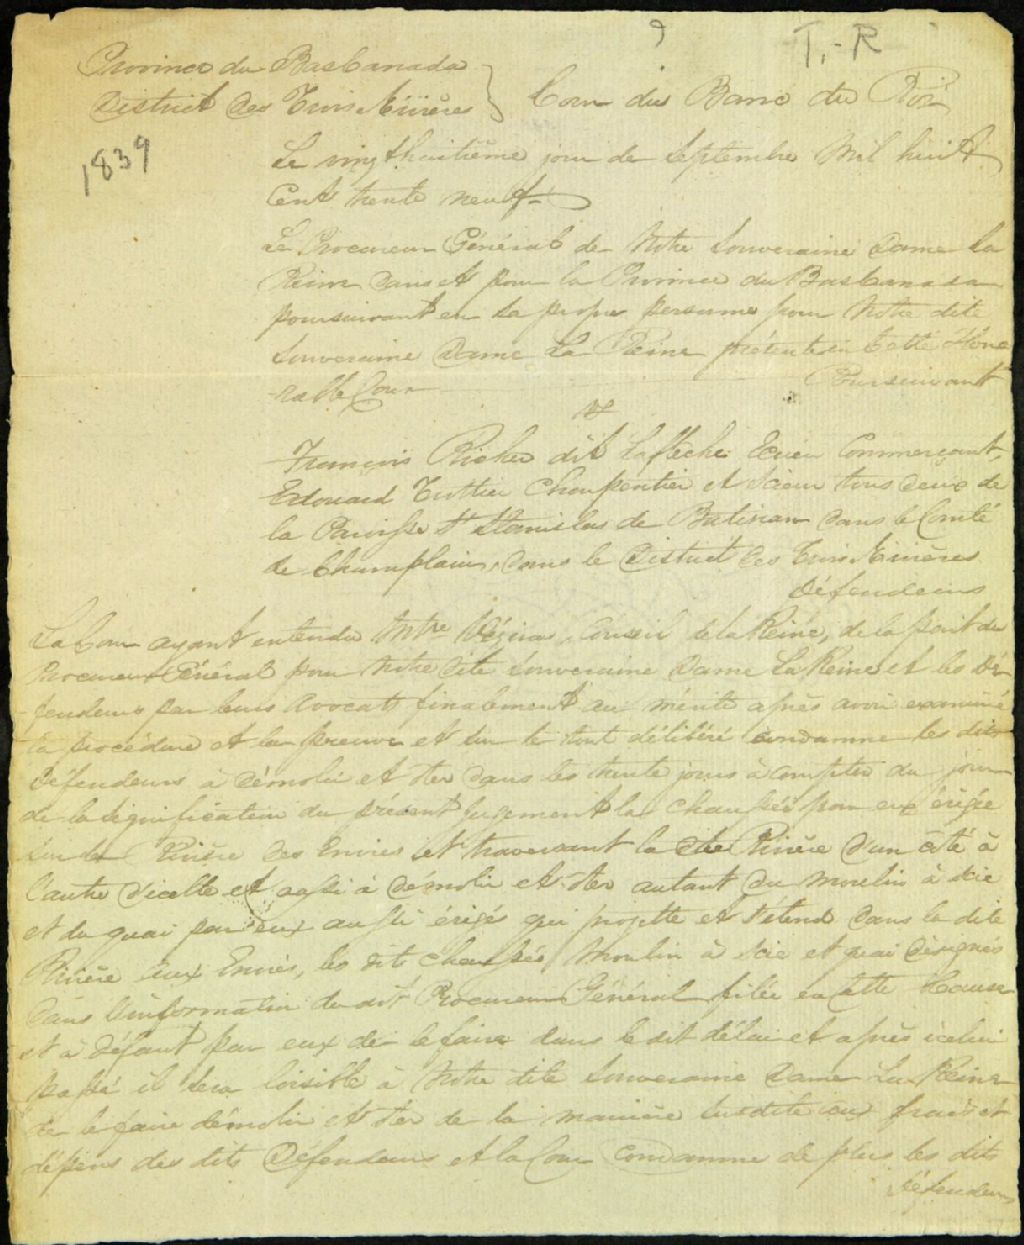 T. - R
Province du Bas Canada
District des Trois Rivières } Cour du Banc du Roi
1839
Le vingthuitième jour de Septembre Mil huit
Cent trente neuf
Le Procureur Général de Notre Souveraine Dame La
Reine dans et pour la Province du Bas Canada
poursuivant en sa propre personne pour Notre dite
Souveraine Dame La Reine présente en Cette Hono
rable Cour Poursuivant
vs
François Richer dit Laflèche Ecuier Commerçant,
Edouard Trottier Charpentier et Scieur tous deux de
la Paroisse St Stanislas de Batiscan dans le Comté
de Champlain, dans le District des Trois Rivières
Défendeurs
La Cour ayant entendu Mtre Vézina, Conseil de la Reine, de la part du
Procureur Général pour Notre dite Souveraine Dame La Reine et les Dé
fendeurs par leurs Avocats finalement au mérite après avoir examiné
la procédure et la preuve et sur le tout délibéré condamne les dits
Défendeurs à démolir et ôter dans les trente jours à compter du jour
de la signification du présent jugement la chaussée par eux érigée
sur la Rivière des Envies et traversant la dite Rivière d'un côté à
l'autre d'icelle et aussi à démolir et ôter autant du moulin à scie
et du quai par eux aussi érigés qui projette et s'étend dans la dite
Rivière aux Envies, les dits chaussée, Moulin à Scie et quai désignés
dans l'information du dit Procureur Général filée en Cette Cour
et à défaut par eux de le faire dans le dit délai et après icelui
passé il sera loisible à Notre dite Souveraine Dame La Reine
de le faire démolir et ôter de la manière susdite aux frais et
dépens des dits Défendeurs et la Cour condamne de plus les dits
défendeurs